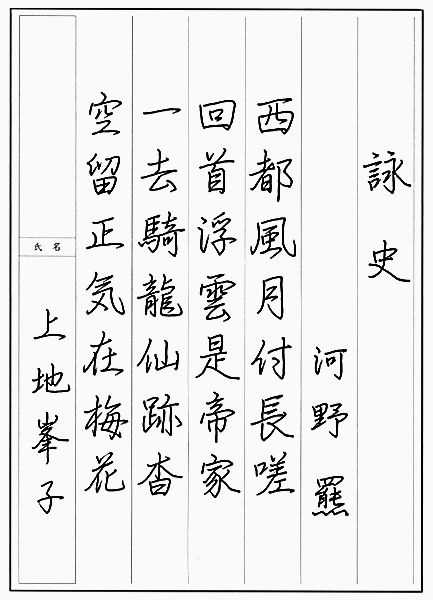 詠史
河野羆
西都風月付長嗟
回首浮雲是帝家
一去騎龍仙跡杳
空留正気在梅花
氏名
上地峯子